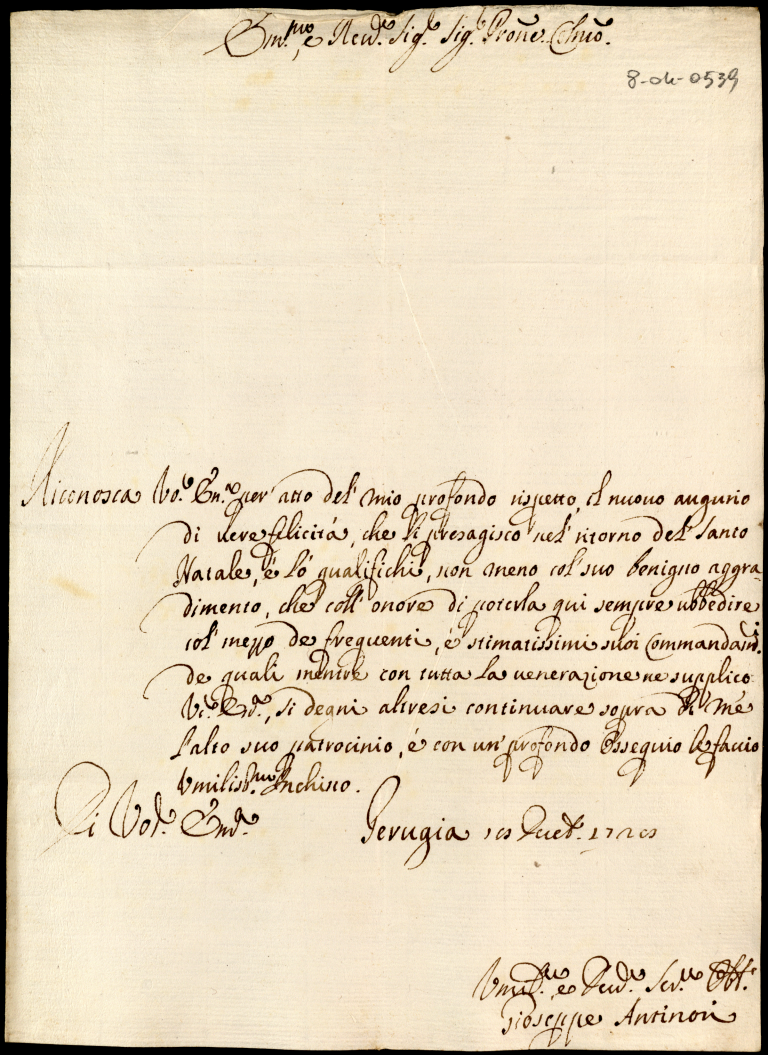 Em.mo e Rev.mo Sig.r Sig.r Prone Colmo.
8-ok-0539
Riconosca Vo.a Em.a per atto del mio profondo rispetto, el nuovo augurio
di vere felicità, che li presagisco nel ritorno del Santo
Natale, è lo qualifichi, non meno col suo benigno aggra
dimento, che coll'onore di poterla qui sempre ubbedire
col mezzo de frequenti, è stimatissimi suoi Commandam.ti
de quali mentre con tutta la venerazione ne supplico
V.a Em.a, si degni altresi continuare sopra di mè
l'alto suo patrocinio, è con un profondo Ossequio le faccio
Umiliss.mo Inchino.
Di Vos.a Em.a Perugia Xbre
Umil.mo e Dev.mo Ser.re Obl.o
Gioseppe Antinori